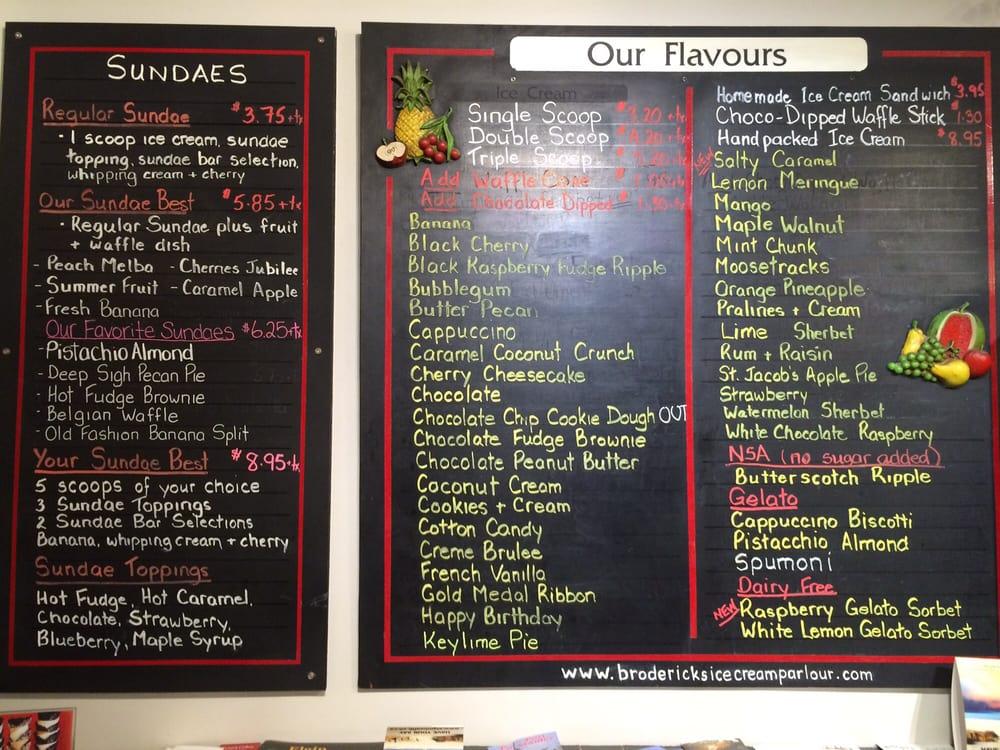 SUNDAES
Regular Sundae $3.75+tx
• 1 scoop ice cream, sundae
topping, sundae bar selection,
whipping cream + cherry
Our Sundae Best $5.85+tx
• Regular Sundae plus fruit
+ waffle dish
- Peach Melba - Cherries Jubilee
- Summer Fruit - Caramel Apple
- Fresh Banana
Our Favorite Sundaes $6.25+tx
- Pistachio Almond
- Deep Sigh Pecan Pie
- Hot Fudge Brownie
- Belgian Waffle
- Old Fashion Banana Split
Your Sundae Best $8.95+tx
5 scoops of your choice
3 Sundae Toppings
2 Sundae Bar Selections
Banana, whipping cream + cherry
Sundae Toppings
Hot Fudge, Hot Caramel,
Chocolate, Strawberry,
Blueberry, Maple Syrup
Our Flavours
Ice Cream
Single Scoop $3.20 +tx
Double Scoop $4.20 +tx
Triple Scoop
Add Waffle Cone
Add Chocolate Dipped
Banana
Black Cherry
Black Raspberry Fudge Ripple
Bubblegum
Butter Pecan
Cappuccino
Caramel Coconut Crunch
Cherry Cheesecake
Chocolate
Chocolate Chip Cookie Dough OUT
Chocolate Fudge Brownie
Chocolate Peanut Butter
Coconut Cream
Cookies + Cream
Cotton Candy
Creme Brulee
French Vanilla
Gold Medal Ribbon
Happy Birthday
Keylime Pie
Homemade Ice Cream Sandwich $3.95
Choco-Dipped Waffle Stick 1.30
Handpacked Ice Cream $8.95
NEW Salty Caramel
Lemon Meringue
Mango
Maple Walnut
Mint Chunk
Moosetracks
Orange Pineapple
Pralines + Cream
Lime Sherbet
Rum + Raisin
St. Jacob's Apple Pie
Strawberry
Watermelon Sherbet
White Chocolate Raspberry
NSA (no sugar added)
Butterscotch Ripple
Gelato
Cappuccino Biscotti
Pistacchio Almond
Spumoni
Dairy Free
NEW Raspberry Gelato Sorbet
White Lemon Gelato Sorbet
www.brodericksicecreamparlour.com